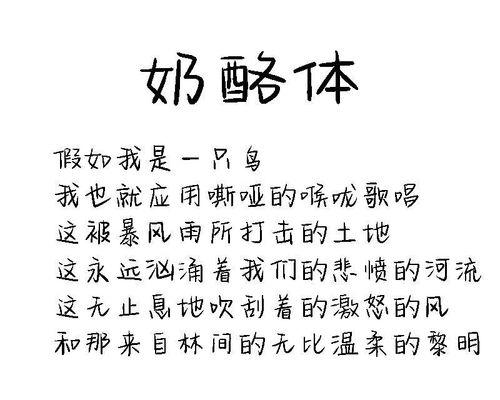 奶酪体
假如我是一只鸟
我也就应用嘶哑的喉咙歌唱
这被暴风雨所打击的土地
这永远汹涌着我们的悲愤的河流
这无止息地吹刮着的激怒的风
和那来自林间的无比温柔的黎明